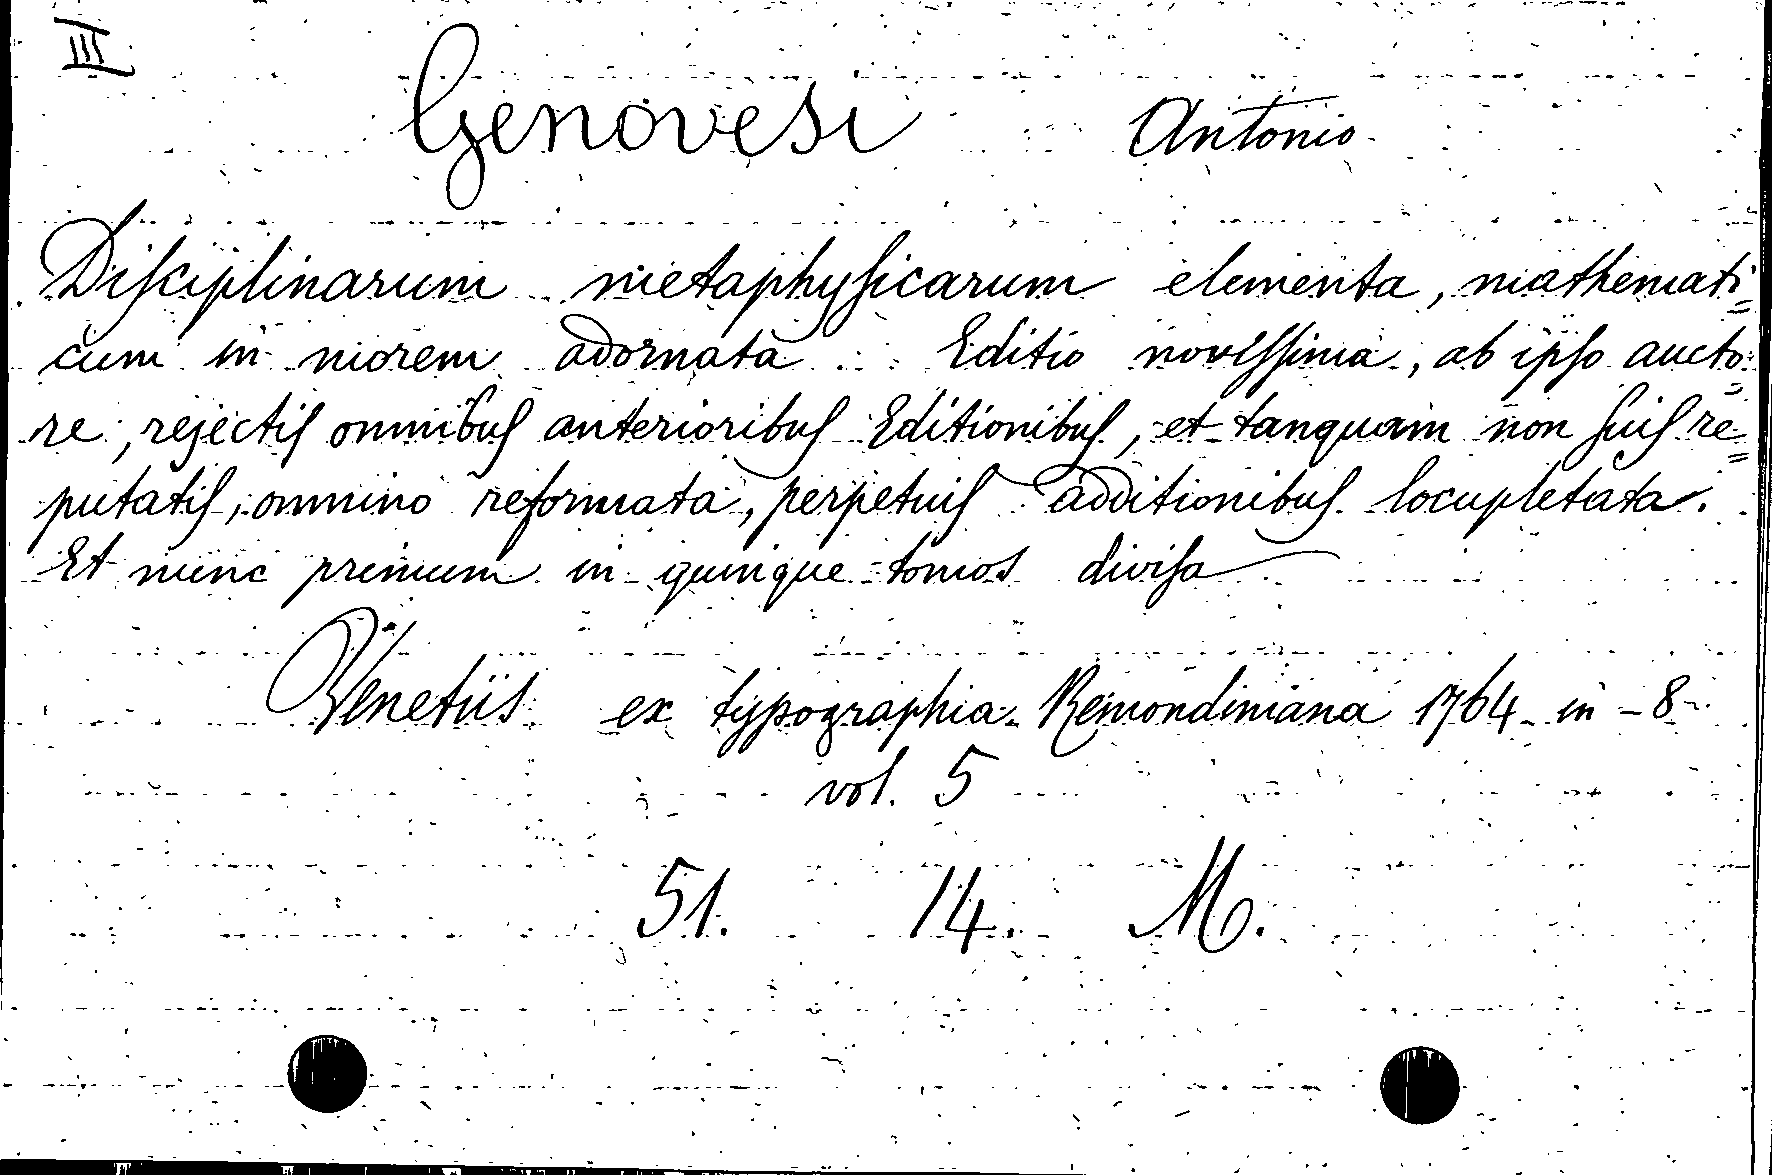 III
Genovesi Antonio
Disciplinarum metaphysicarum elementa, mathemati=
cum in morem adornata . . Editio novissima, ab ipso aucto=
re, rejectis omnibus anterioribus Editionibus, et tanquam non suis re=
putatis, omnino reformata, perpetuis additionibus locupletata.
Et nunc primum in quinque tomos divisa
Venetiis ex typographia Remondiniana 1764 in-8
vol. 5
51. 14. M.